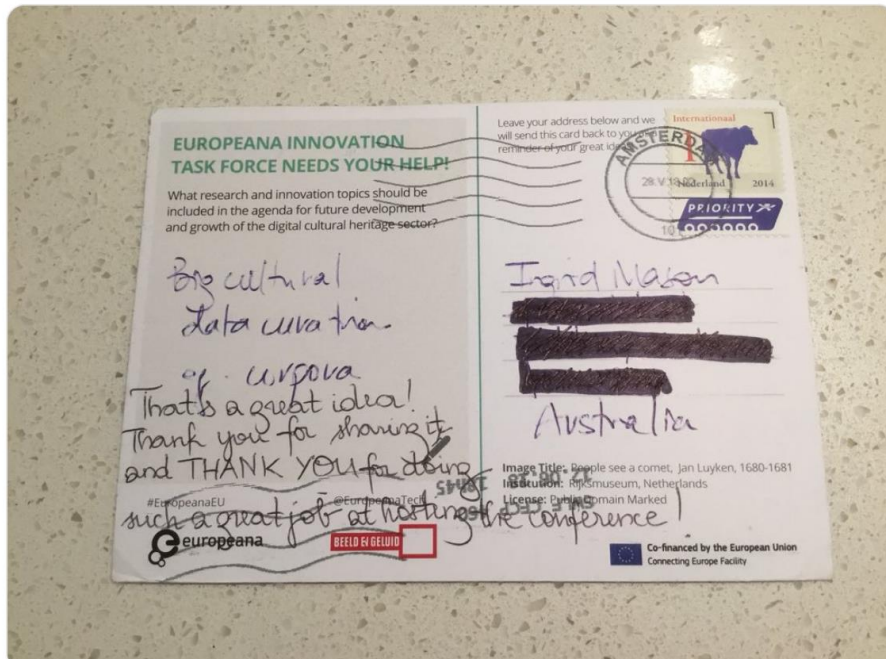 EUROPEANA INNOVATION
TASK FORCE NEEDS YOUR HELP!
What research and innovation topics should be
included in the agenda for future development
and growth of the digital cultural heritage sector?
Big cultural
data curation
of corpora
That's a great idea!
Thank you for sharing it
and THANK YOU for doing
such a great job at hosting the conference!
#EuropeanaEU
@EuropeanaTech
europeana
BEELD EN GELUID
Leave your address below and we
will send this card back to you
reminder of your great
Internationaal
1
Nederland 2014
PRIORITY
AMSTERDAM
Ingrid Mason
Australia
Image Title: People see a comet, Jan Luyken, 1680-1681
Institution: Rijksmuseum, Netherlands
License: Public Domain Marked
Co-financed by the European Union
Connecting Europe Facility